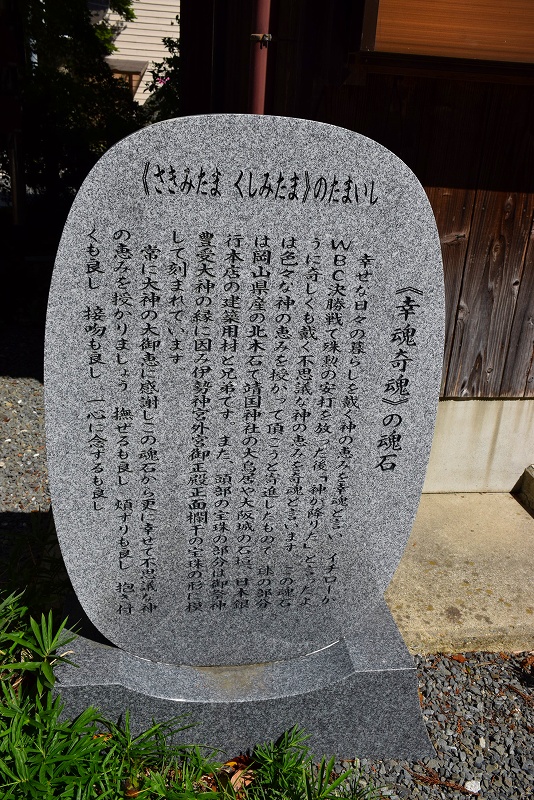 《さきみたま くしみたま》のたまいし
《幸魂奇魂》の魂石
幸せな日々の暮らしを戴く神の恵みを幸魂と言い イチローが
WBC決勝戦で殊勲の安打を放った後「神が降りた」と言ったよ
うに奇しくも戴く不思議な神の恵みを奇魂と言います。この魂石
は色々な神の恵みを授かって頂こうと寄進したもので 球の部分
は岡山県産の北木石で靖国神社の大鳥居や大阪城の石垣、日本銀
行本店の建築用材と兄弟です。また、頭部の宝珠の部分は御祭神
豊受大神の縁に因み伊勢神宮外宮御正殿正面欄干の宝珠の形に模
して刻まれています
常に大神の大御恵に感謝しこの魂石から更に幸せで不思議な神
の恵みを授かりましょう 撫ぜるも良し 頬すりも良し 抱き付
くも良し 接吻も良し 一心に念ずるも良し